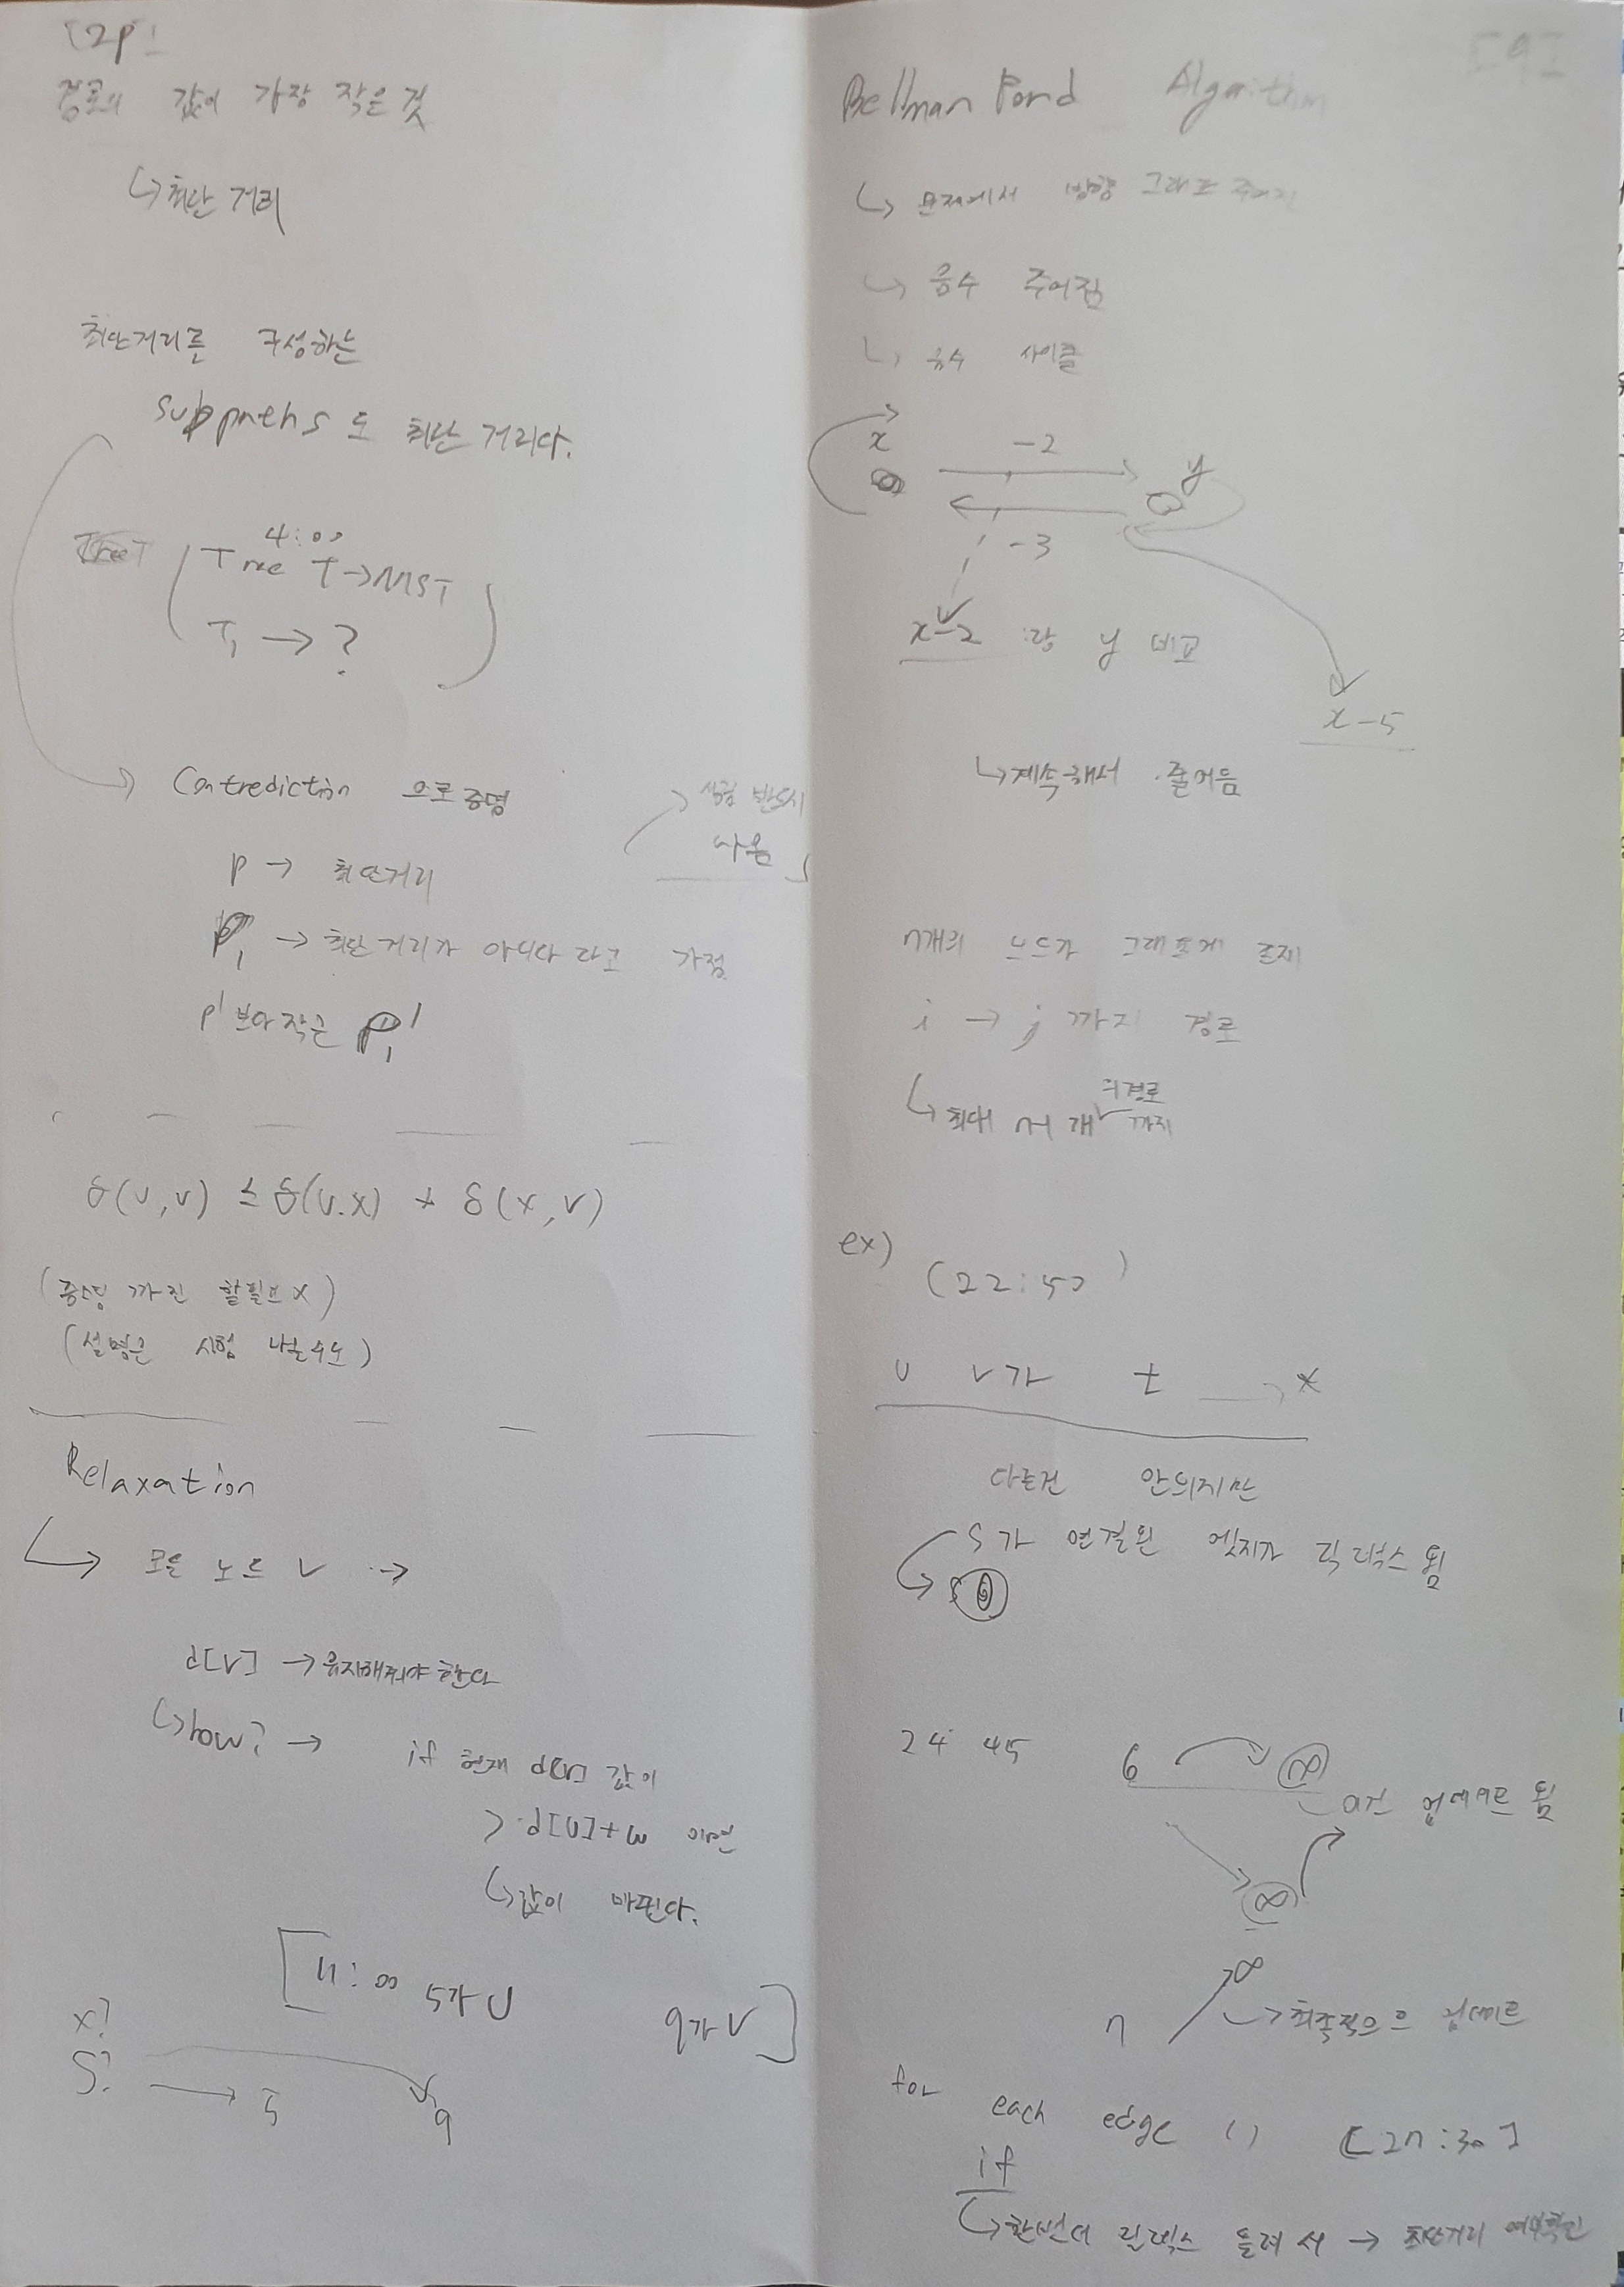 [2p]
경로의 값이 가장 작은 것
↳ 최단 거리
최단거리를 구성하는
subpaths도 최단 거리다.
4:00
Tree T → MST
T₁ → ?
Contrediction 으로 증명
시험 반드시
나옴
p → 최단거리
P₁ → 최단거리가 아니다 라고 가정
P₁'
δ(u,v) ≤ δ(u.x) + δ(x,v)
(증명 까진 할필요 x)
(설명은 시험 나올수도)
Relaxation
↳ 모든 노드 v →
d[v] → 유지해줘야한다
↳ how? → if 현재 d[v] 값이
> d[u]+w 이면
↳ 값이 바뀐다.
[11:00 5가 U 9가 V]
x?
S? → 5 9
[9]
Bellman Ford Algorithm
↳ 문제에서 방향 그래프 주어진
↳ 음수 주어짐
↳ 음수 사이클
x -2 y
-3
x-2 랑 y 비교
x-5
↳ 계속해서 줄어듬
n개의 노드가 그래프에 존재
i → j 까지 경로
↳ 최대 n-1 개의 경로 까지
ex) (22:50)
u v가 t x
다른건 안되지만
S가 연결된 엣지가 릭렉스 됨
s 0
24 45 6 ∞
이건 업데이트 됨
∞
∞
n ↳ 최종적으으 업데이트
for each edge () [2n:30]
if
↳ 한번더 릴렉스 돌려서 → 최단거리 여부확인